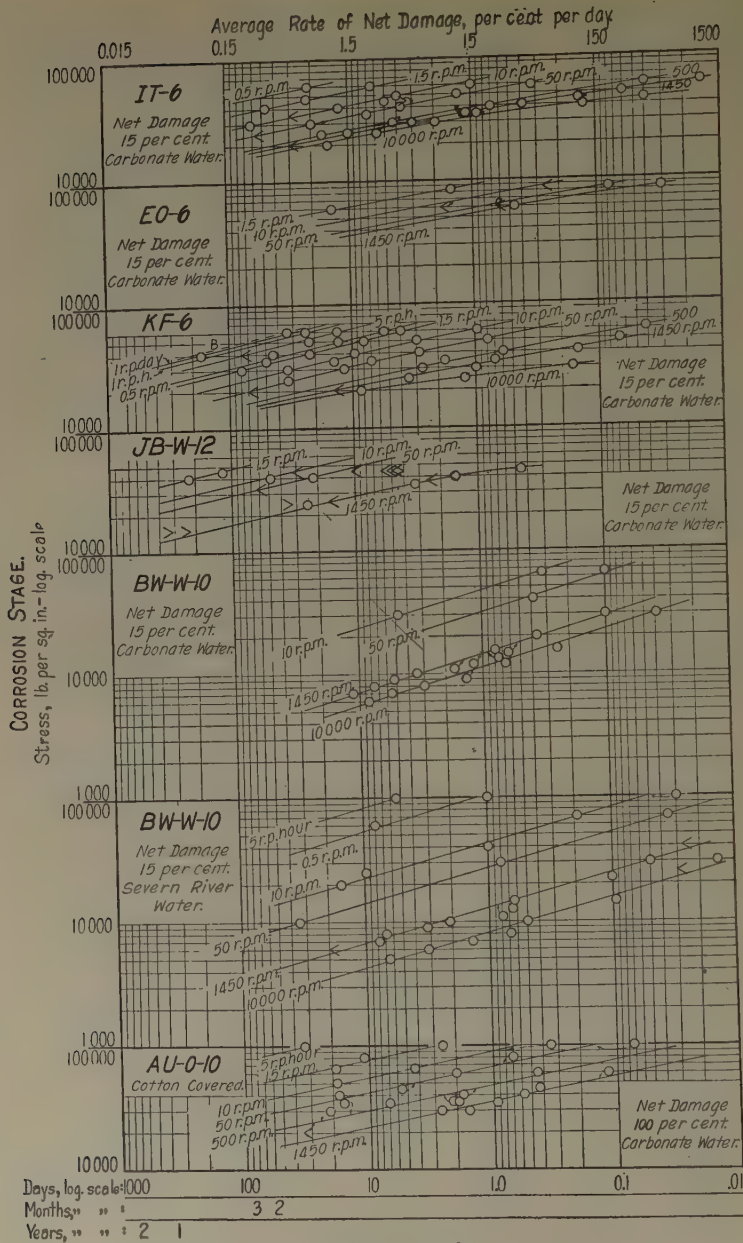 Average Rate of Net Damage, per cent per day
0.015 0.15 1.5 15 150 1500
CORROSION STAGE.
Stress, lb. per sq. in.-log. scale
100000
IT-6
Net Damage
15 per cent.
Carbonate Water.
0.5 r.p.m.
1.5 r.p.m.
10 r.p.m.
50 r.p.m.
500
1450
10000 r.p.m.
10000
100000
EO-6
Net Damage
15 per cent.
Carbonate Water.
1.5 r.p.m.
10 r.p.m.
50 r.p.m.
1450 r.p.m.
10000
100000
KF-6
B
1 r.p.day
1 r.p.h.
0.5 r.p.m.
5 r.p.h.
1.5 r.p.m.
10 r.p.m.
50 r.p.m.
500
1450 r.p.m.
10000 r.p.m.
Net Damage
15 per cent.
Carbonate Water.
10000
100000
JB-W-12
1.5 r.p.m.
10 r.p.m.
50 r.p.m.
1450 r.p.m.
Net Damage
15 per cent.
Carbonate Water.
10000
100000
BW-W-10
Net Damage
15 per cent.
Carbonate Water.
10 r.p.m.
50 r.p.m.
1450 r.p.m.
10000 r.p.m.
10000
1000
100000
BW-W-10
Net Damage
15 per cent.
Severn River
Water.
5 r.p.hour
0.5 r.p.m.
10 r.p.m.
50 r.p.m.
1450 r.p.m.
10000 r.p.m.
10000
1000
100000
AU-O-10
Cotton Covered.
5 r.p.hour
1.5 r.p.m.
10 r.p.m.
50 r.p.m.
500 r.p.m.
1450 r.p.m.
Net Damage
100 per cent.
Carbonate Water.
10000
Days, log. scale: 1000 100 10 1.0 0.1 .01
Months, " " : 3 2
Years, " " : 2 1